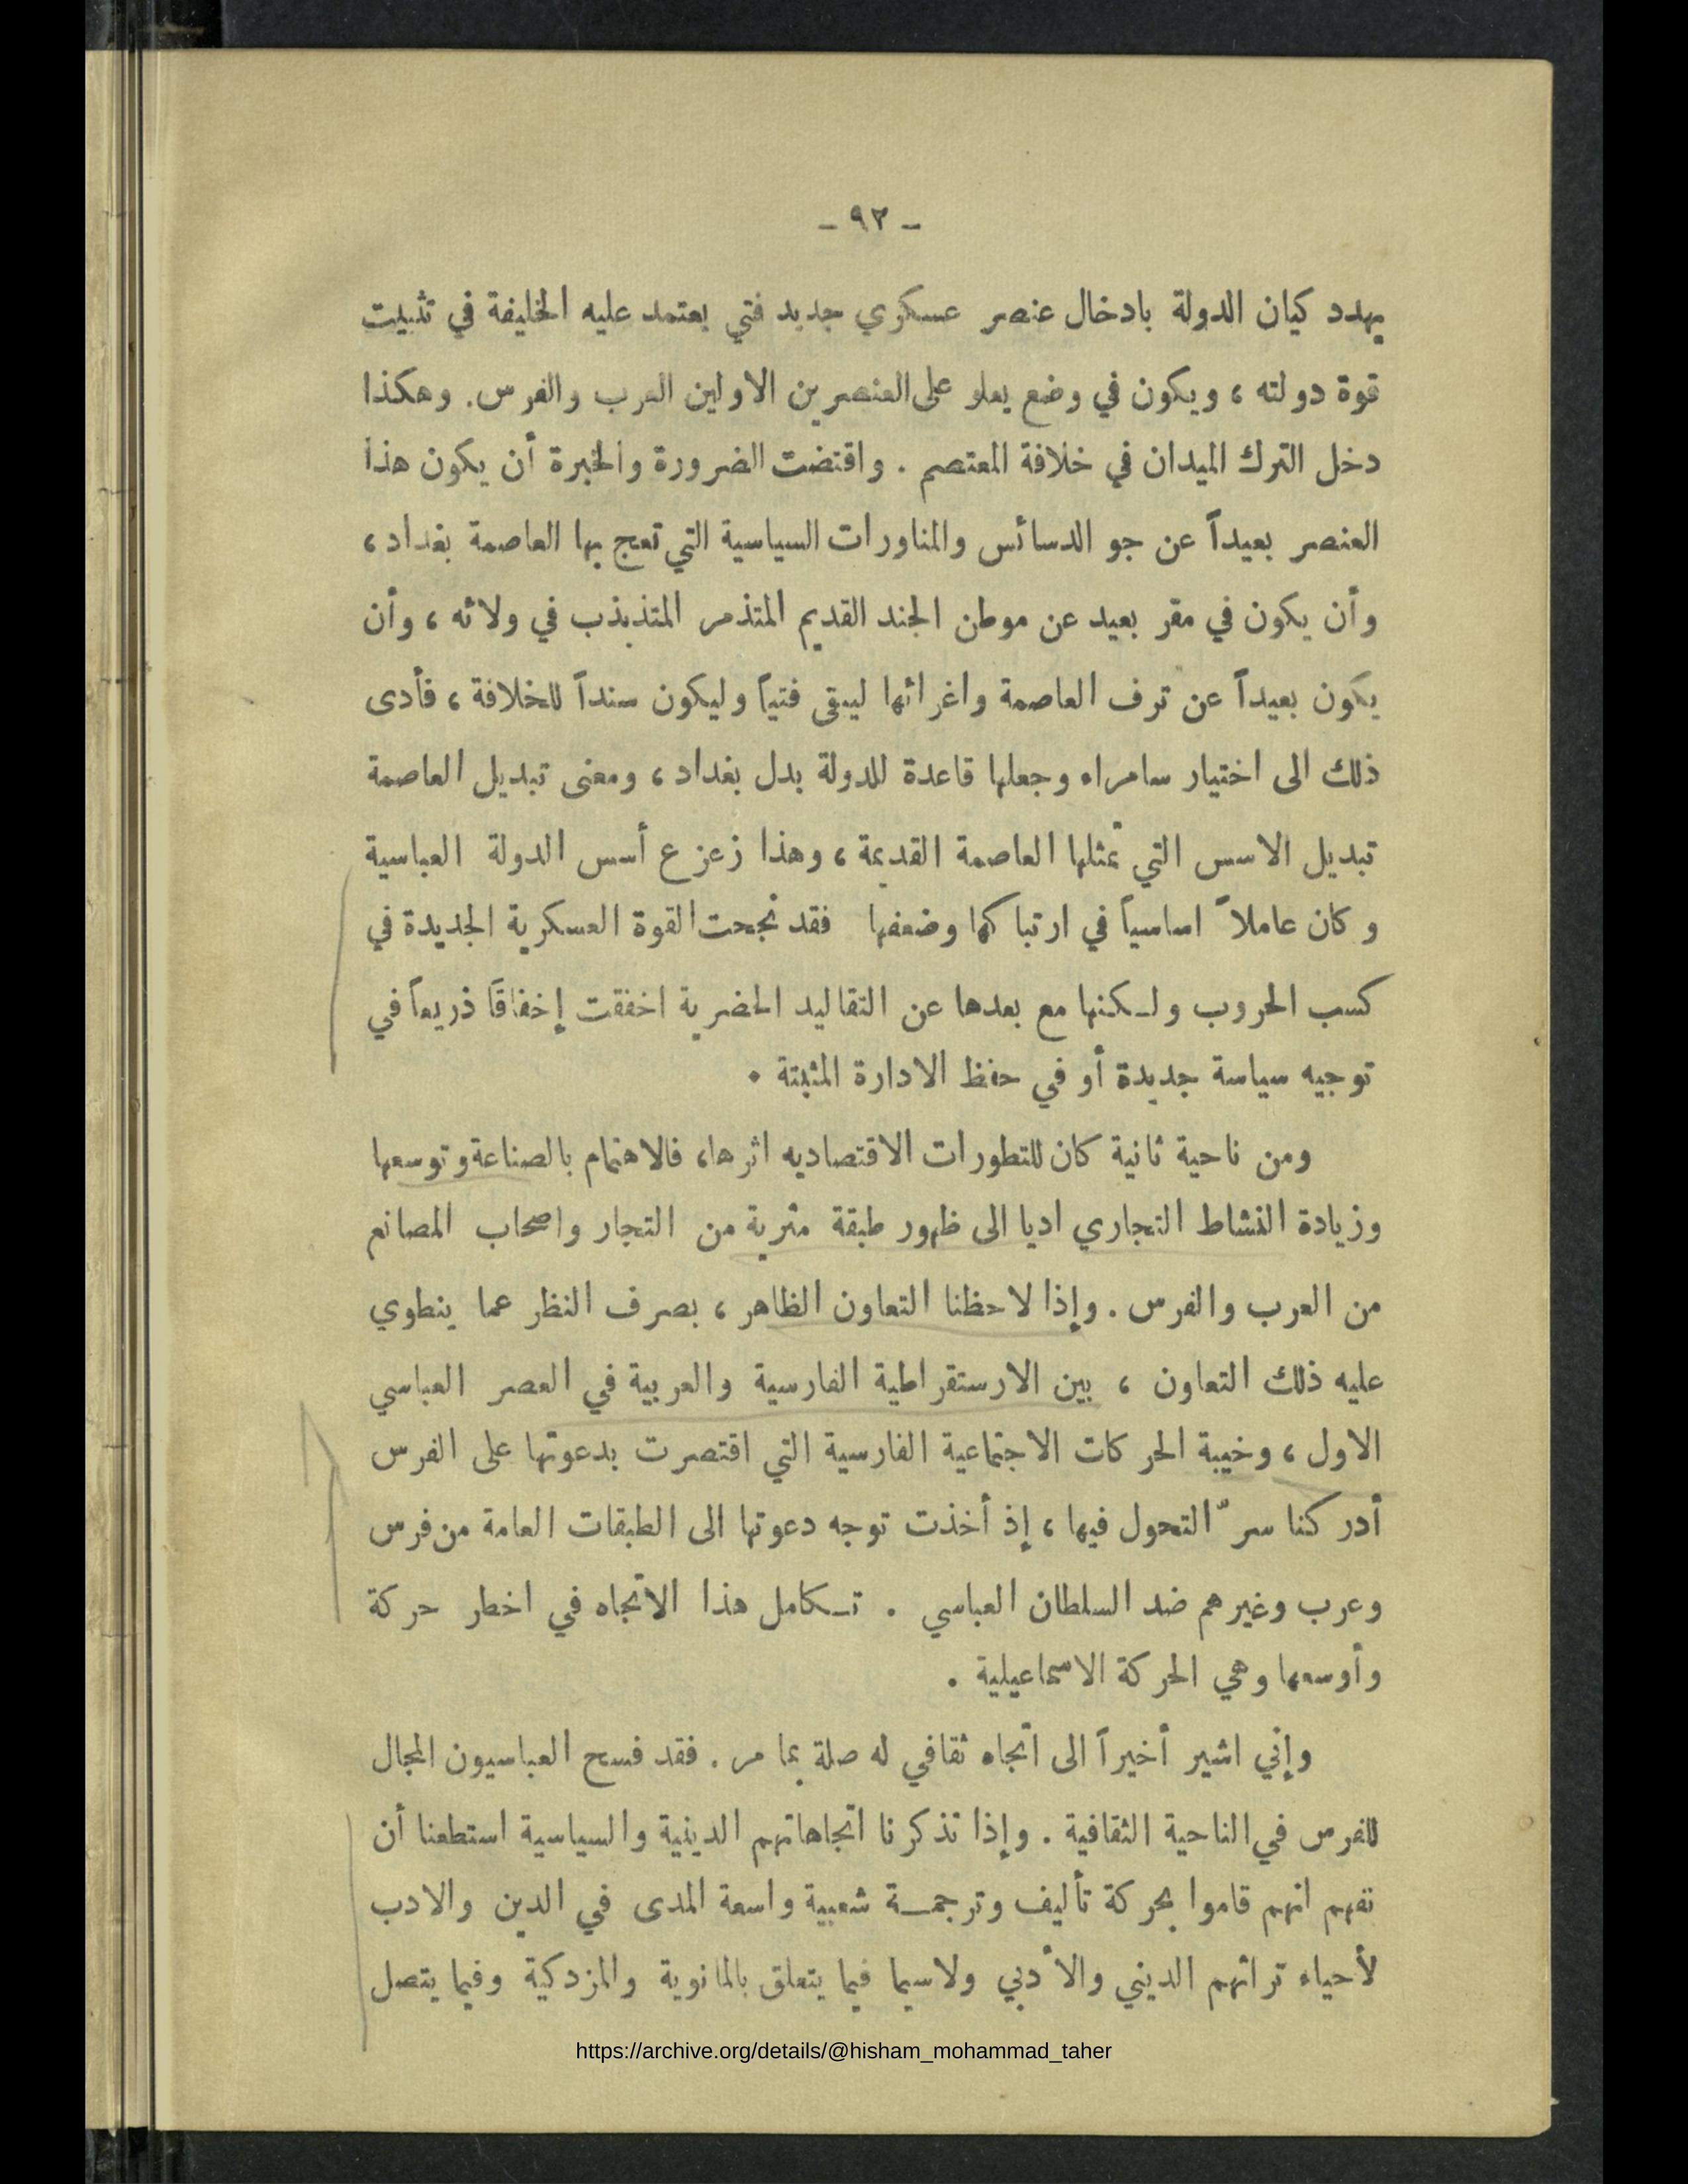 - ٩٢ -
يهدد كيان الدولة بادخال عنصر عسكري جديد فتي يعتمد عليه الخليفة في تثبيت
قوة دولته ، ويكون في وضع يعلو على العنصرين الاولين العرب والفرس. وهكذا
دخل الترك الميدان في خلافة المعتصم . واقتضت الضرورة والخبرة أن يكون هذا
العنصر بعيداً عن جو الدسائس والمناورات السياسية التي تعج بها العاصمة بغداد ،
وأن يكون في مقر بعيد عن موطن الجند القديم المتذمر المتذبذب في ولائه ، وأن
يكون بعيداً عن ترف العاصمة واغرائها ليبقى فتياً وليكون سنداً للخلافة ، فأدى
ذلك الى اختيار سامراء وجعلها قاعدة للدولة بدل بغداد ، ومعنى تبديل العاصمة
تبديل الاسس التي تمثلها العاصمة القديمة ، وهذا زعزع أسس الدولة العباسية
وكان عاملاً اساسياً في ارتباكها وضعفها فقد نجحت القوة العسكرية الجديدة في
كسب الحروب ولكنها مع بعدها عن التقاليد الحضرية اخفقت إخفاقاً ذريعاً في
توجيه سياسة جديدة أو في حفظ الادارة المثبتة .
ومن ناحية ثانية كان للتطورات الاقتصاديه اثرها، فالاهتمام بالصناعة وتوسعها
وزيادة النشاط التجاري اديا الى ظهور طبقة مثرية من التجار واصحاب المصانع
من العرب والفرس . وإذا لاحظنا التعاون الظاهر ، بصرف النظر عما ينطوي
عليه ذلك التعاون ، بين الارستقراطية الفارسية والعربية في العصر العباسي
الاول ، وخيبة الحركات الاجتماعية الفارسية التي اقتصرت بدعوتها على الفرس
أدركنا سرّ التحول فيها ، إذ أخذت توجه دعوتها الى الطبقات العامة من فرس
وعرب وغيرهم ضد السلطان العباسي . تكامل هذا الاتجاه في اخطر حركة
وأوسعها وهي الحركة الاسماعيلية .
وإني اشير أخيراً الى اتجاه ثقافي له صلة بما مر . فقد فسح العباسيون المجال
للفرس في الناحية الثقافية . وإذا تذكرنا اتجاهاتهم الدينية والسياسية استطعنا أن
نفهم انهم قاموا بحركة تأليف وترجمة شعبية واسعة المدى في الدين والادب
لأحياء تراثهم الديني والأدبي ولاسيما فيما يتعلق بالمانوية والمزدكية وفيما يتصل
https://archive.org/details/@hisham_mohammad_taher